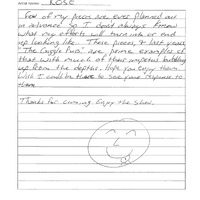 Artist name: ROSE
Few of my pieces are ever planned out
in advance so I don't always know
what my efforts will turn into or end
up looking like. These pieces, & last years
"The Giggle Pus" are prime examples of
that with much of their impetus bubbling
up from the depths. Hope you enjoy them
wish I could be there to see your response to
them.
Thanks for coming. Enjoy the show.